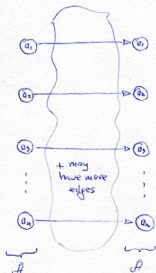 a₁ a₁
a₂ a₂
a₃ a₃
+ may
have more
edges
aₙ aₙ
A A